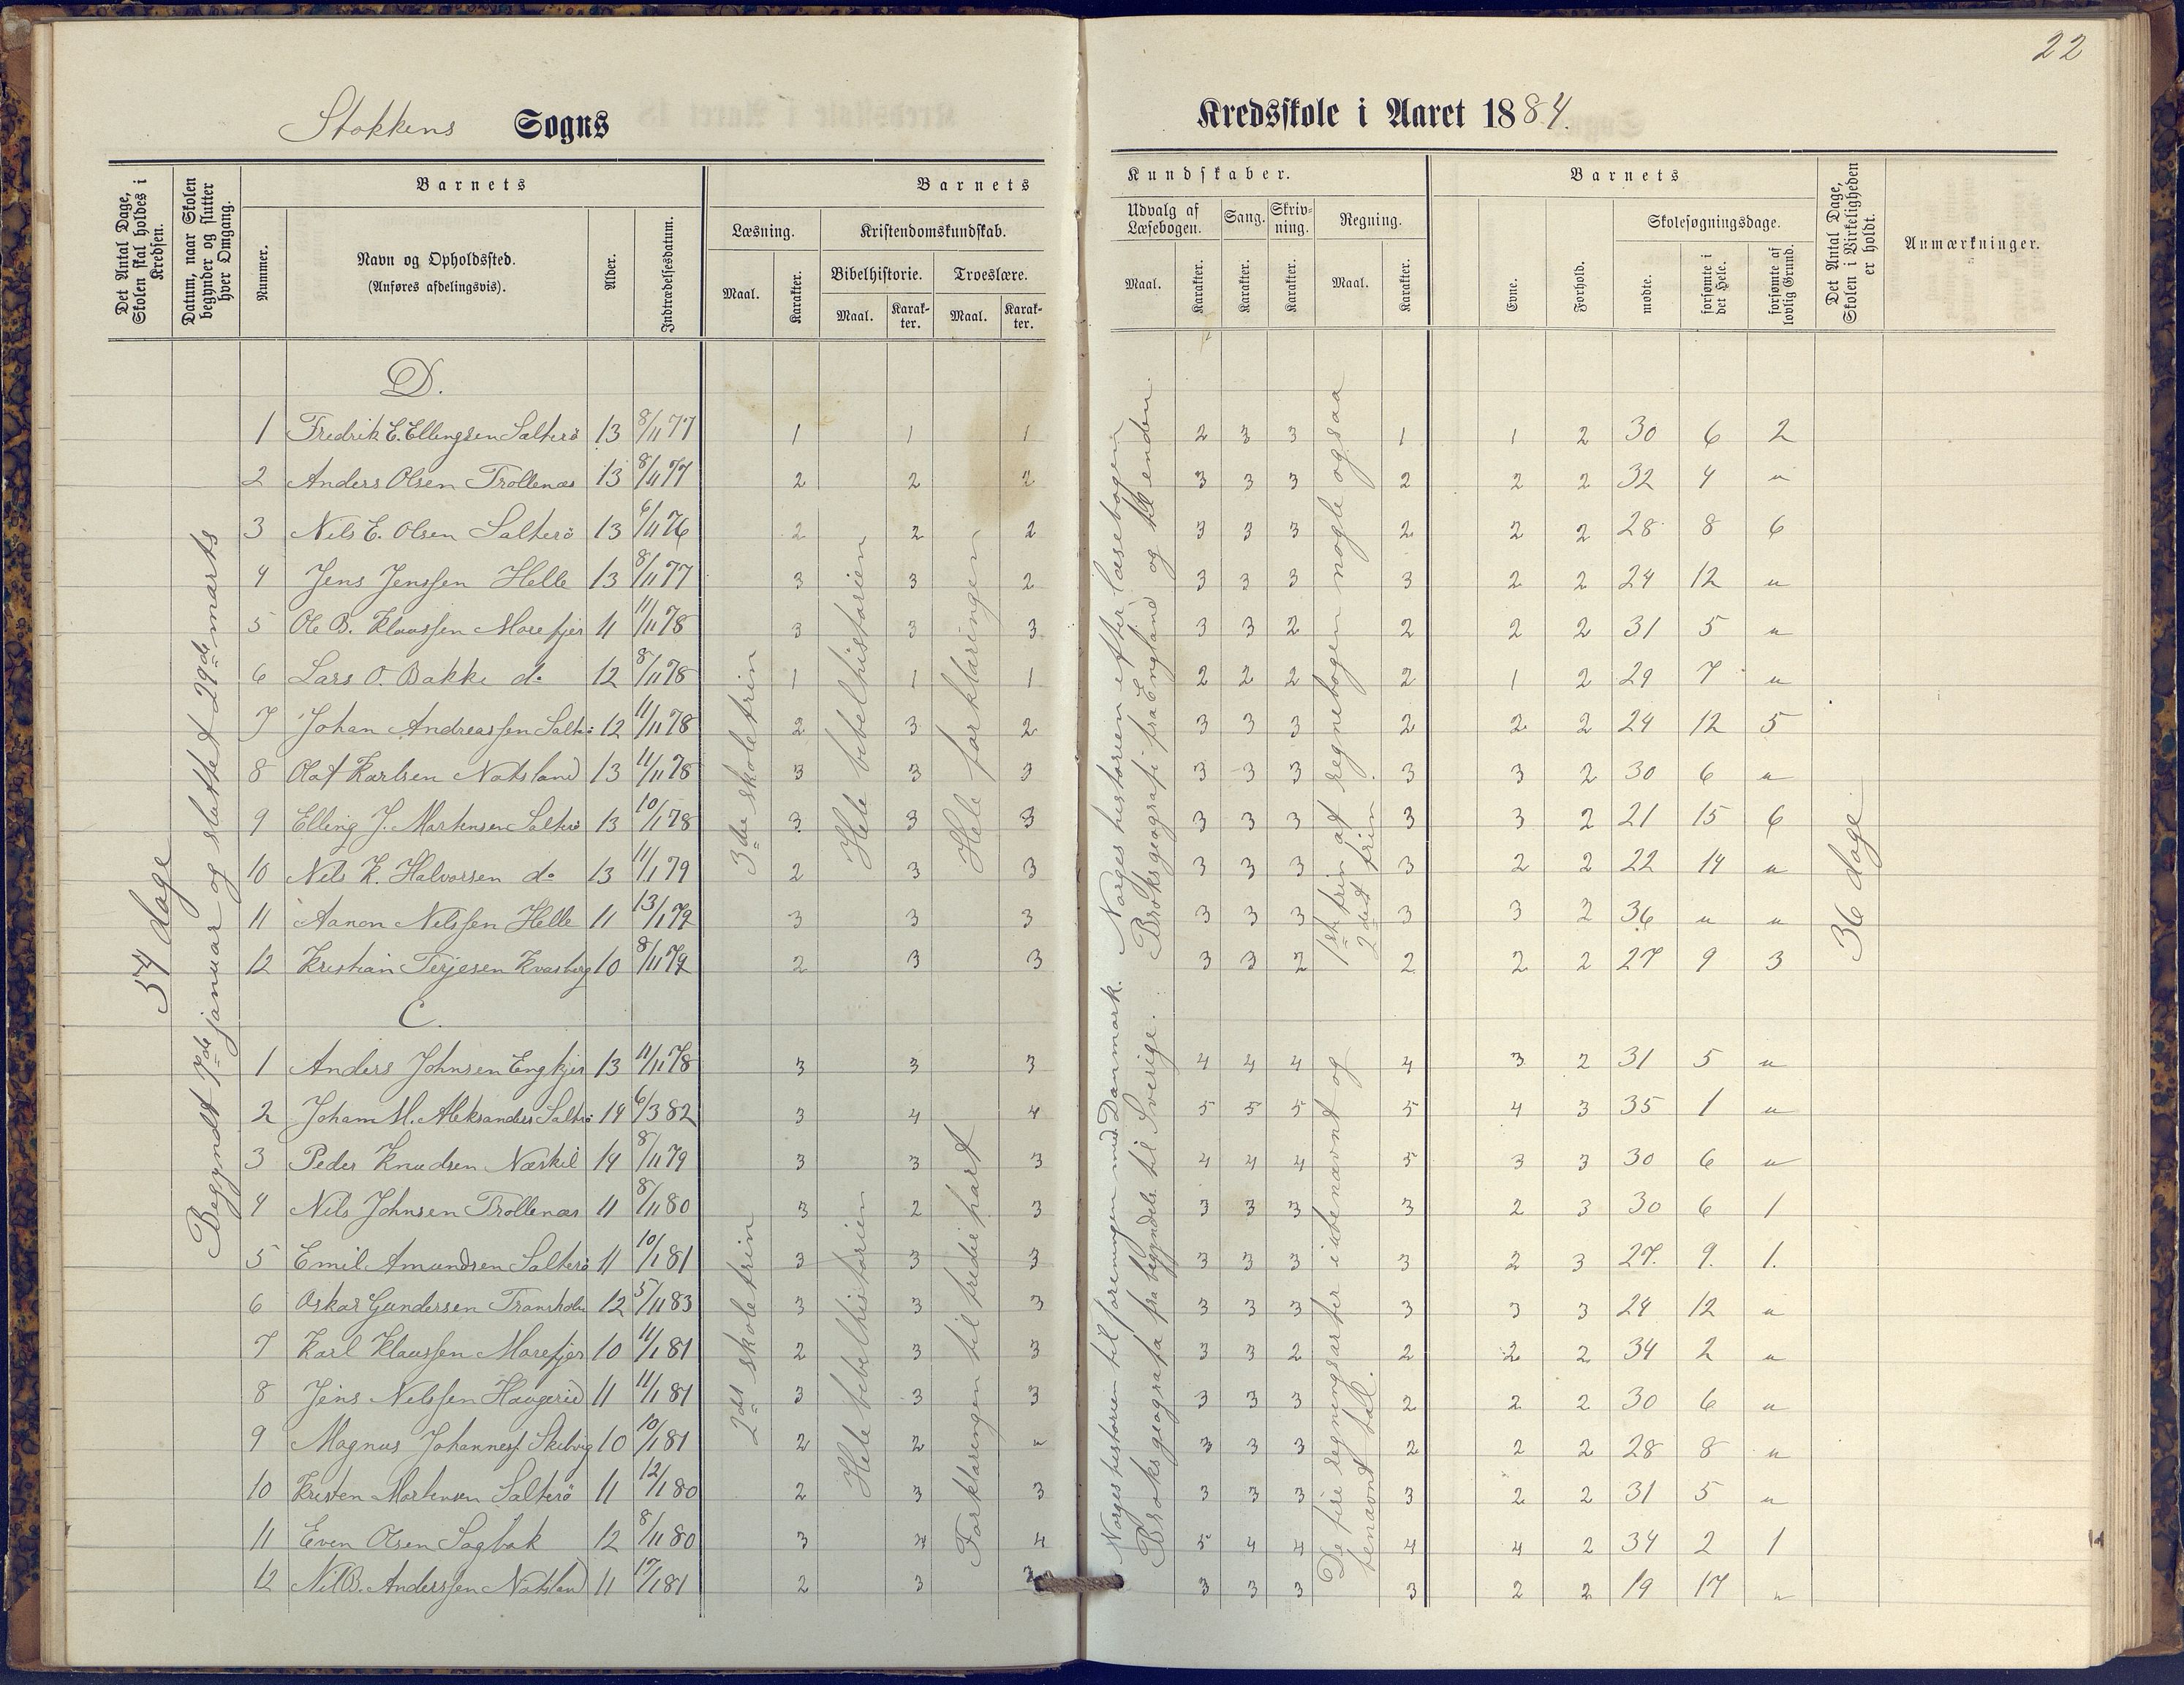 22
Stokkens Sogns
Kredsskole i Aaret 1884.
Det Antal Dage, Skolen skal holdes i Kredsen.
Datum, naar Skolen begynder og slutter hver Omgang.
Barnets
Nummer.
Navn og Opholdssted.
(Anføres afdelingsvis).
Alder.
Indtrædelsesdatum.
Barnets
Læsning.
Maal.
Karakter.
Kristendomskundskab.
Bibelhistorie.
Maal.
Karakter.
Troeslære.
Maal.
Karakter.
Kundskaber.
Udvalg af Læsebogen.
Maal.
Karakter.
Sang.
Karakter.
Skrivning.
Karakter.
Regning.
Maal.
Karakter.
Barnets
Evne.
Forhold.
Skolesøgningsdage.
mødte.
forsømte i det Hele.
forsømte af lovlig Grund.
Det Antal Dage, Skolen i Virkeligheden er holdt.
Anmærkninger.
54 dage
Begyndt 7de januar og sluttet 29de marts
D.
1 Fredrik E. Ellingsen Salterö 13 8/11 77 1 1 1 2 3 3 1 1 2 30 6 2
2 Anders Olsen Trollenæs 13 8/11 77 2 2 2 3 3 3 2 2 2 32 4 "
3 Nils E. Olsen Salterö 13 6/11 76 2 2 2 3 3 3 2 2 2 28 8 6
4 Jens Jenssen Helle 13 8/11 77 3 3 2 3 3 3 3 2 2 24 12 "
5 Ole B. Klaussen Morefjer 11 11/11 78 3 3 3 3 3 2 2 2 2 31 5 "
6 Lars O. Bakke do 12 8/11 78 1 1 1 2 2 2 2 1 2 29 7 "
7 Johan Andreassen Salterö 12 11/11 78 2 3 2 3 3 3 2 2 2 24 12 5
8 Olaf Karlsen Natsland 13 11/11 78 3 3 3 3 3 3 3 3 2 30 6 "
9 Elling J. Martensen Salterö 13 10/1 78 3 3 3 3 3 3 3 3 2 21 15 6
10 Nils K. Halvorsen do 13 11/1 79 2 3 3 3 3 3 3 2 2 22 14 "
11 Aanon Nilssen Helle 11 13/1 79 3 3 3 3 3 3 3 3 2 36 " "
12 Kristian Terjesen Kvasberg 10 8/11 79 2 3 3 3 3 2 2 2 2 27 9 3
3die skoletrin
Hele bibelhistorien
Hele forklaringen
Norges historien efter læsebogen
Broks geografi fra England og til enden.
1ste trin af regnebogen nogle ogsaa
2det trin
36 dage
C.
1 Anders Johnsen Engkjer 13 11/11 78 3 3 3 4 4 4 4 3 2 31 5 "
2 Joham M. Aleksanders Salterö 14 6/3 82 3 4 4 5 5 5 5 4 3 35 1 "
3 Peder Knudsen Næskil 14 8/11 79 3 3 3 4 4 4 5 3 3 30 6 "
4 Nils Johnsen Trollenæs 11 8/11 80 3 2 3 3 3 3 3 2 3 30 6 1
5 Emil Amundsen Salterö 11 10/1 81 3 3 3 3 3 3 3 2 3 27. 9. 1.
6 Oskar Gundersen Transholm 12 5/11 83 3 3 3 3 3 3 3 3 3 24 12 "
7 Karl Klaussen Morefjer 10 11/1 81 2 3 3 3 3 2 2 2 2 34 2 "
8 Jens Nilssen Haugerid 11 11/1 81 3 3 3 3 3 3 2 2 2 30 6 "
9 Magnus Johannesf. Skilvig 10 10/1 81 2 2 " 3 3 3 2 2 2 28 8 "
10 Kristen Mortensen Salterö 11 12/1 80 2 3 3 3 3 3 3 2 2 31 5 "
11 Even Olsen Sagbak 12 8/11 80 3 4 4 5 4 4 4 4 2 34 2 1
12 Nil B. Anderssen Natsland 11 17/1 81 2 3 3 3 3 3 3 2 2 19 17 "
2det skoletrin
Hele bibelhistorien
Forklaringen til tredie part
Norges historien til foreningen med Danmark.
Broks geografa fra begyndelse til Sverige.
De fire regningsarter i ubenævnt og
benævnt tall.